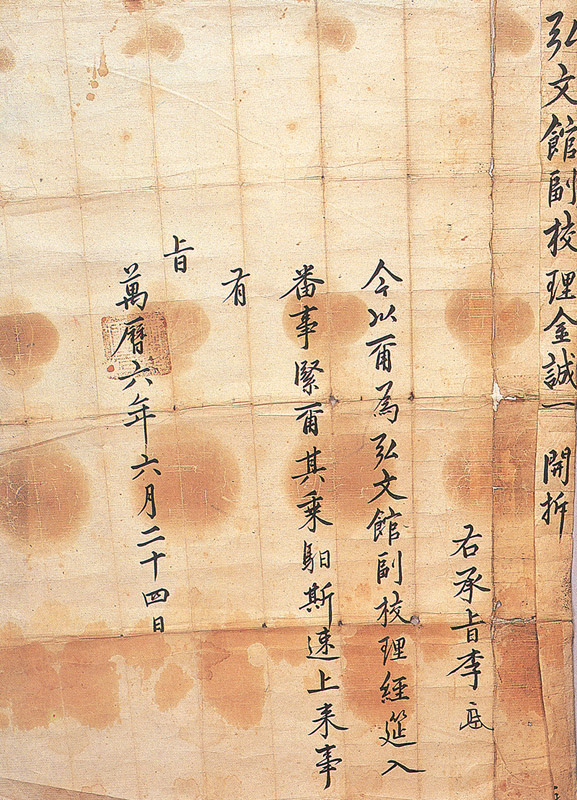 弘文館副校理金誠一 開拆
右承旨李
今以爾爲弘文館副校理經筵入
番事緊爾其乗馹斯速上来事
有
旨
萬曆六年六月二十四日